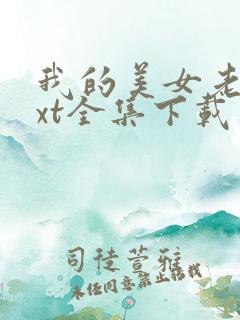 我的美女老
xt全集下载
司徒萱雅
未经同意禁止转载